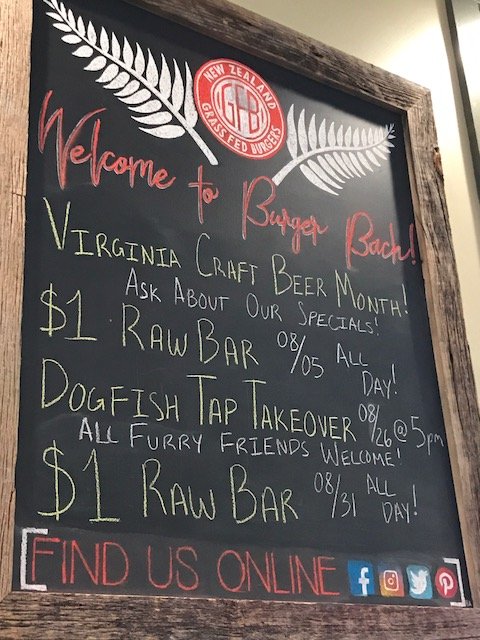 NEW ZEALAND
GRASS FED BURGERS
Welcome to Burger Bach!
VIRGINIA CRAFT BEER MONTH!
ASK ABOUT OUR SPECIALS!
$1 RAW BAR 08/05 ALL DAY!
DOGFISH TAP TAKEOVER 08/26 @ 5pm
ALL FURRY FRIENDS WELCOME!
$1 RAW BAR 08/31 ALL DAY!
[FIND US ONLINE]